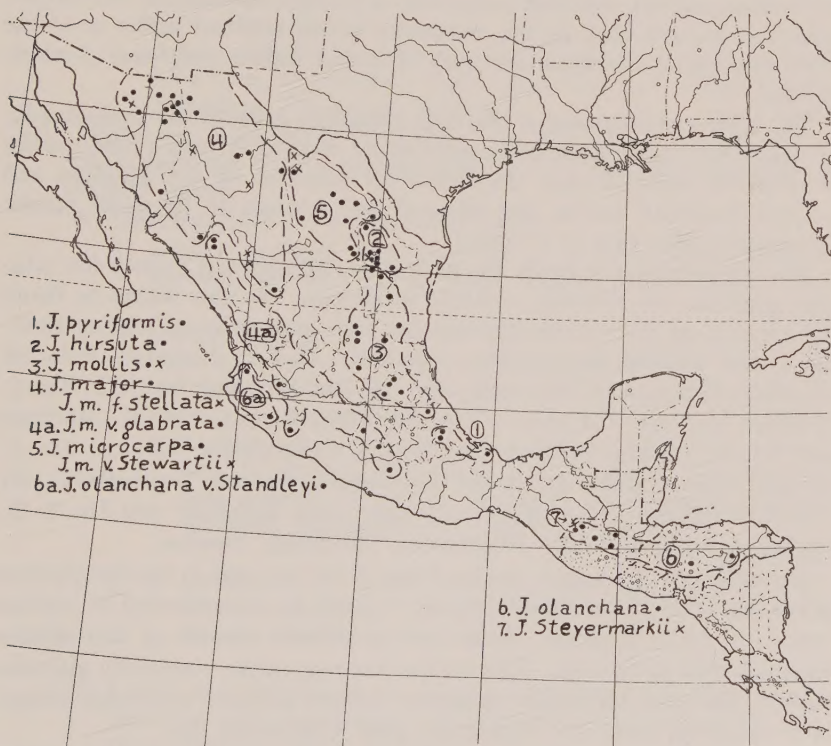 4
5
2
4a
3
6a
1
7
6
1. J. pyriformis •
2. J. hirsuta •
3. J. mollis • x
4. J. major •
J. m. f. stellata x
4a. J. m. v. glabrata •
5. J. microcarpa •
J. m. v. Stewartii x
6a. J. olanchana v. Standleyi •
6. J. olanchana •
7. J. Steyermarkii x